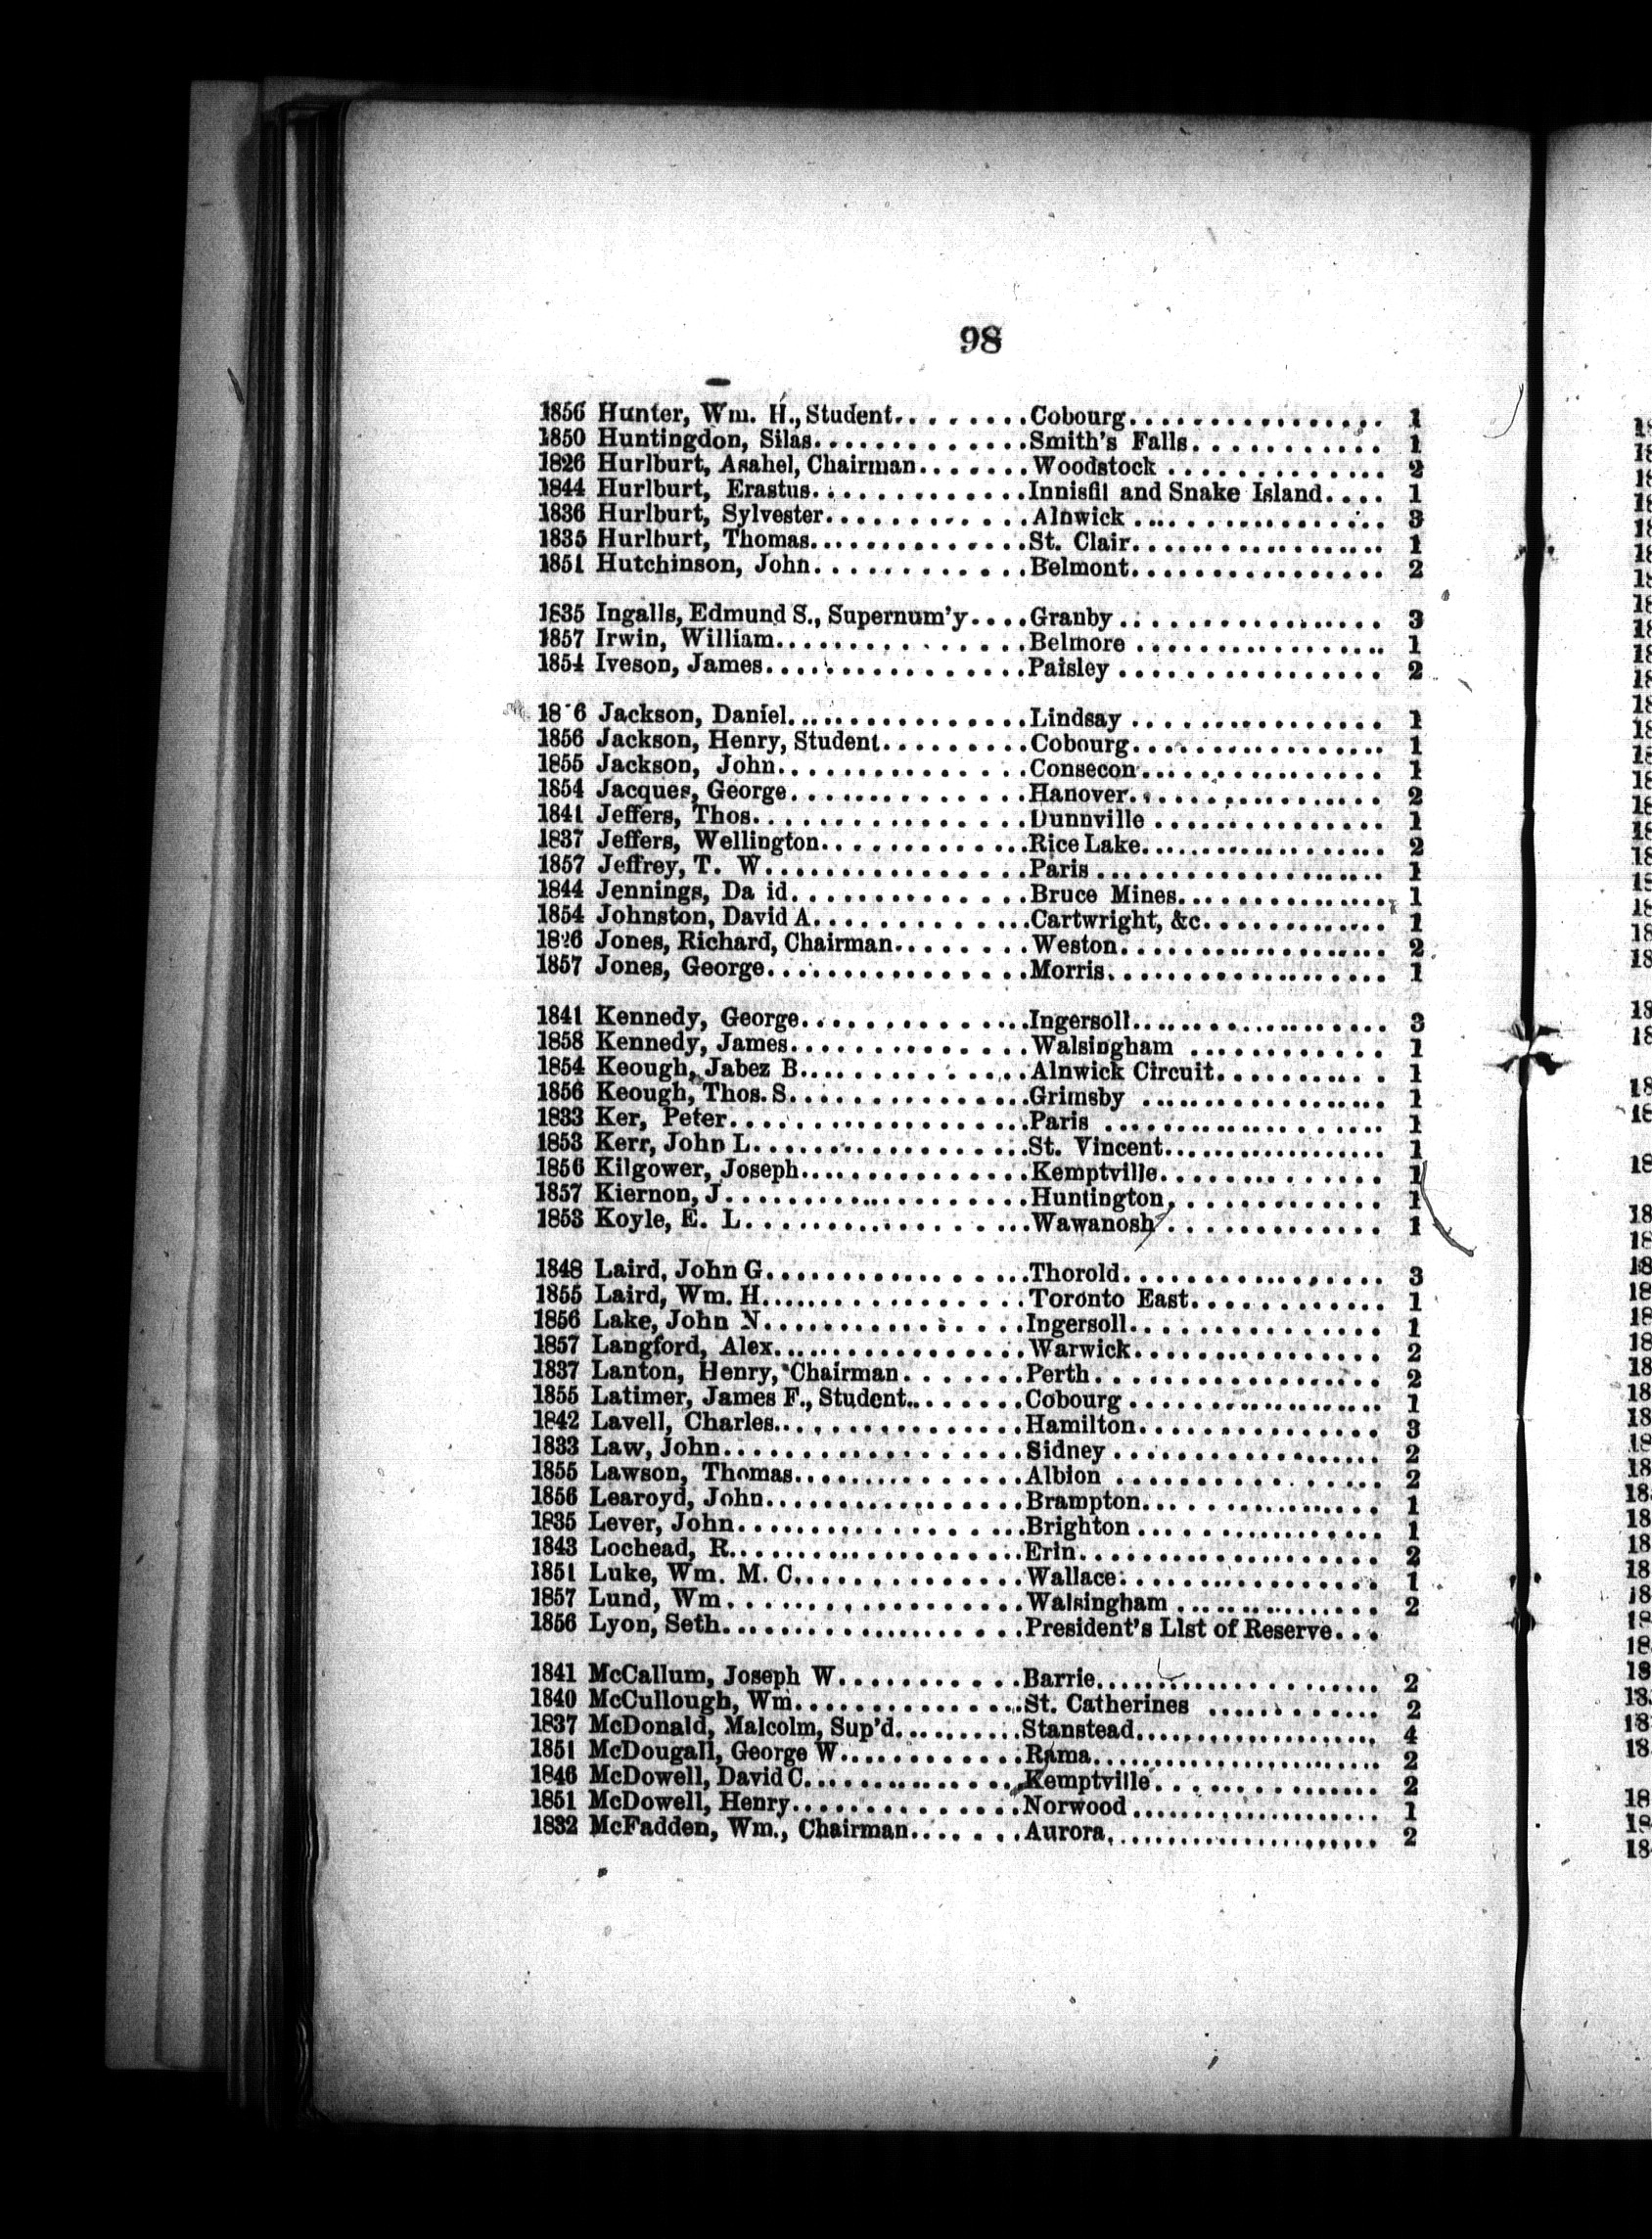 98
1856 Hunter, Wm. H., Student........Cobourg................ 1
1850 Huntingdon, Silas.............Smith's Falls........... 1
1826 Hurlburt, Asahel, Chairman.......Woodstock .............. 2
1844 Hurlburt, Erastus.............Innisfil and Snake Island.... 1
1836 Hurlburt, Sylvester............Alnwick ................. 3
1835 Hurlburt, Thomas..............St. Clair.................. 1
1851 Hutchinson, John.............Belmont................ 2
1835 Ingalls, Edmund S., Supernum'y....Granby ................. 3
1857 Irwin, William...............Belmore ................. 1
1854 Iveson, James................Paisley ................ 2
18 6 Jackson, Daniel...............Lindsay ................ 1
1856 Jackson, Henry, Student.........Cobourg................ 1
1855 Jackson, John...............Consecon............... 1
1854 Jacques, George..............Hanover................ 2
1841 Jeffers, Thos.................Dunnville .............. 1
1837 Jeffers, Wellington.............Rice Lake................ 2
1857 Jeffrey, T. W................Paris ................... 1
1844 Jennings, Da id..............Bruce Mines.............. 1
1854 Johnston, David A.............Cartwright, &c............ 1
1826 Jones, Richard, Chairman........Weston.................. 2
1857 Jones, George................Morris.................. 1
1841 Kennedy, George..............Ingersoll.................. 3
1858 Kennedy, James...............Walsingham ............ 1
1854 Keough, Jabez B..............Alnwick Circuit........... 1
1856 Keough, Thos. S...............Grimsby ................ 1
1833 Ker, Peter..................Paris .................. 1
1853 Kerr, John L.................St. Vincent................ 1
1856 Kilgower, Joseph..............Kemptville.............. 1
1857 Kiernon, J..................Huntington............. 1
1853 Koyle, E. L..................Wawanosh ............. 1
1848 Laird, John G................Thorold................ 3
1855 Laird, Wm. H................Toronto East............ 1
1856 Lake, John N................Ingersoll................ 1
1857 Langford, Alex................Warwick................ 2
1837 Lanton, Henry, Chairman.......Perth.................. 2
1855 Latimer, James F., Student........Cobourg ................ 1
1842 Lavell, Charles................Hamilton............... 3
1833 Law, John..................Sidney ................. 2
1855 Lawson, Thomas..............Albion ................ 2
1856 Learoyd, John................Brampton............... 1
1835 Lever, John..................Brighton ............... 1
1843 Lochead, R..................Erin................... 2
1851 Luke, Wm. M. C..............Wallace................. 1
1857 Lund, Wm..................Walsingham .............. 2
1856 Lyon, Seth...................President's List of Reserve...
1841 McCallum, Joseph W...........Barrie.................... 2
1840 McCullough, Wm..............St. Catherines ........... 2
1837 McDonald, Malcolm, Sup'd..........Stanstead................... 4
1851 McDougall, George W...........Rama.................... 2
1846 McDowell, David C..............Kemptville.............. 2
1851 McDowell, Henry..............Norwood .................. 1
1832 McFadden, Wm., Chairman.......Aurora.................... 2